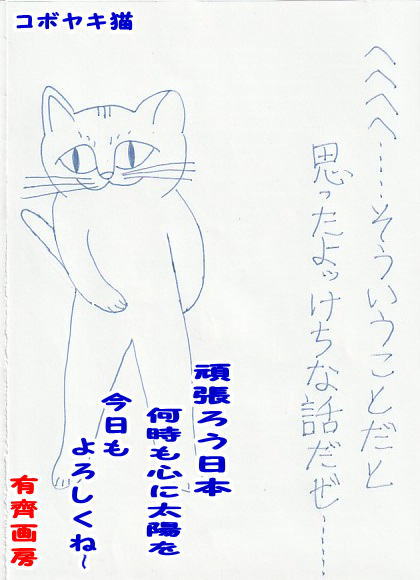 コボヤキ猫
へへへへ……そういうことだと
思ったよッけちな話だぜ……
頑張ろう日本
何時も心に太陽を
今日も
よろしくね～
有齊画房